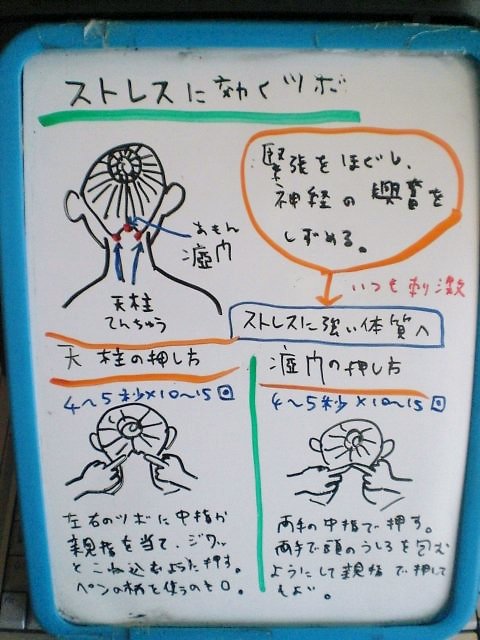 ストレスに効くツボ
緊張をほぐし、
神経の興奮を
しずめる。
あもん
瘂門
天柱
てんちゅう
いつも刺激
ストレスに強い体質へ
天柱の押し方
4〜5秒×10〜15回
左右のツボに中指か
親指を当て、ジワッ
とこね込むように押す。
ペンの柄を使うのも○。
瘂門の押し方
4〜5秒×10〜15回
両手の中指で押す。
両手で頭のうしろを包む
ようにして親指で押して
もよい。